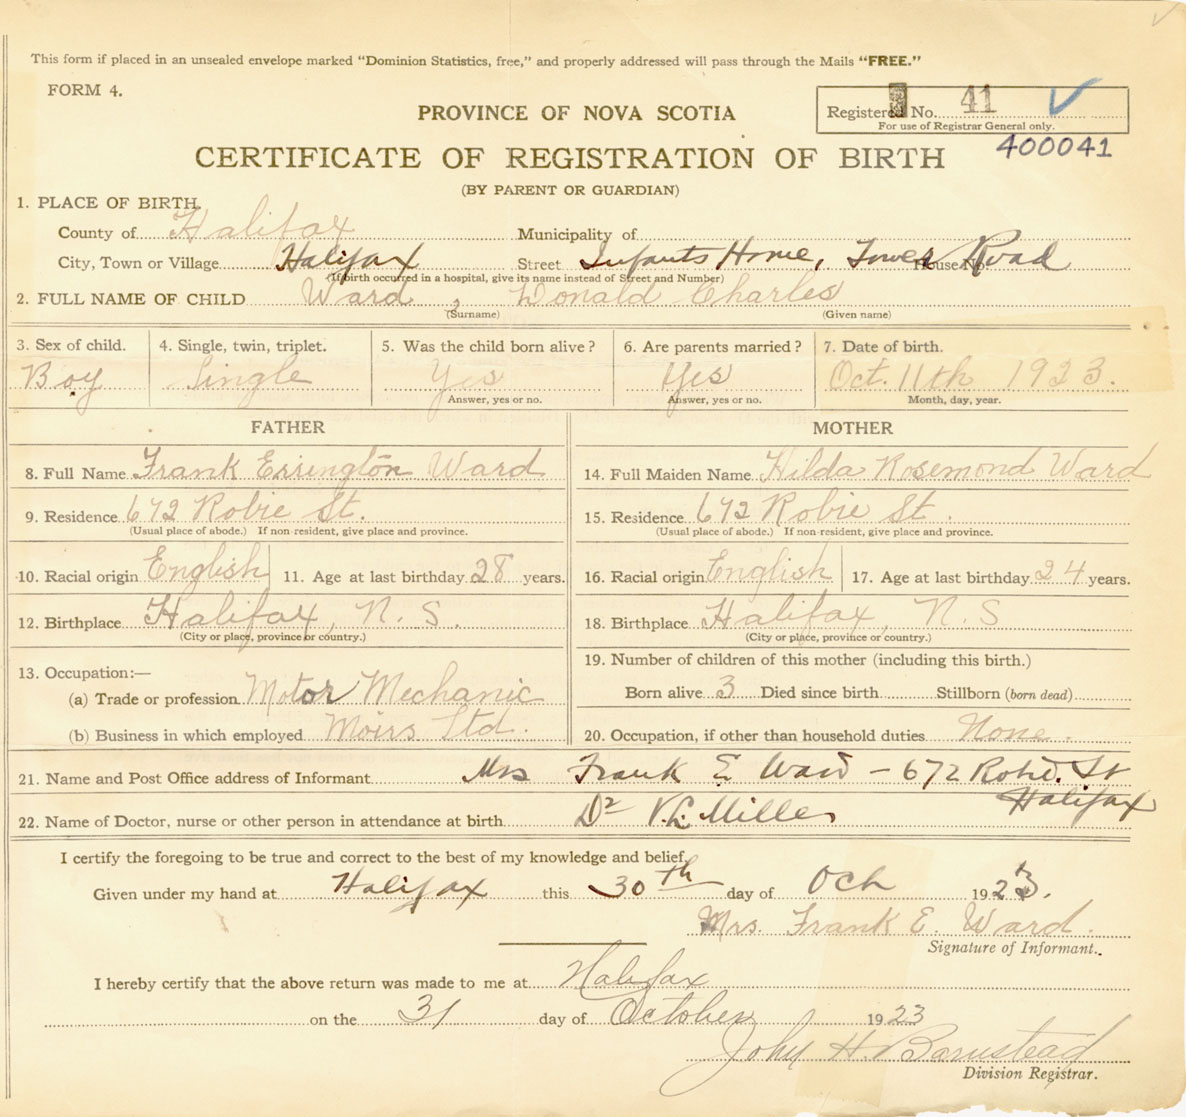 This form if placed in an unsealed envelope marked "Dominion Statistics, free," and properly addressed will pass through the Mails "FREE."
FORM 4.
Registered No. 41
For use of Registrar General only.
PROVINCE OF NOVA SCOTIA
400041
CERTIFICATE OF REGISTRATION OF BIRTH
(BY PARENT OR GUARDIAN)
1. PLACE OF BIRTH.
County of Halifax Municipality of
City, Town or Village Halifax Street Infants Home, Tower Road House No.
(If birth occurred in a hospital, give its name instead of Street and Number)
2. FULL NAME OF CHILD Ward, Donald Charles
(Surname) (Given name)
3. Sex of child. 4. Single, twin, triplet. 5. Was the child born alive? 6. Are parents married? 7. Date of birth.
Boy Single Yes Yes Oct. 11th 1923.
Answer, yes or no. Answer, yes or no. Month, day, year.
FATHER
8. Full Name Frank Errington Ward
9. Residence 672 Robie St.
(Usual place of abode.) If non-resident, give place and province.
10. Racial origin English 11. Age at last birthday 28 years.
12. Birthplace Halifax, N. S.
(City or place, province or country.)
13. Occupation:—
(a) Trade or profession Motor Mechanic
(b) Business in which employed Moirs Ltd.
MOTHER
14. Full Maiden Name Hilda Rosemond Ward
15. Residence 672 Robie St.
(Usual place of abode.) If non-resident, give place and province.
16. Racial origin English 17. Age at last birthday 24 years.
18. Birthplace Halifax, N. S
(City or place, province or country.)
19. Number of children of this mother (including this birth.)
Born alive 3 Died since birth Stillborn (born dead)
20. Occupation, if other than household duties None.
21. Name and Post Office address of Informant Mrs Frank E Ward - 672 Robie. St
Halifax
22. Name of Doctor, nurse or other person in attendance at birth Dr V. L. Miller
I certify the foregoing to be true and correct to the best of my knowledge and belief.
Given under my hand at Halifax this 30th day of Oct 1923.
Mrs. Frank E. Ward.
Signature of Informant.
I hereby certify that the above return was made to me at Halifax
on the 31 day of October 1923
John H. Barnstead
Division Registrar.